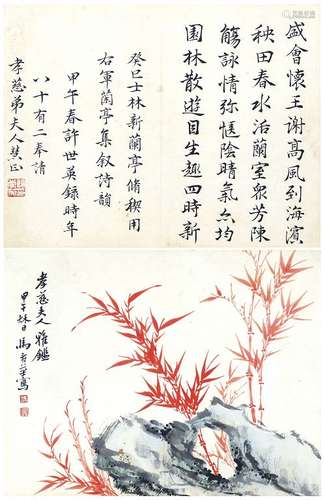 盛會懷王謝高風到海濱
秧田春水治蘭室眾芳陳
觴詠情弥愜陰晴氣忽均
園林散遊目生趣四時新
癸巳士林新蘭亭脩禊用
右軍蘭亭集敘詩韻
甲午春許世英録時年
八十有二奉請
孝慈弟夫人慧正
孝慈夫人雅鑑
甲午秋日馬壽華寫